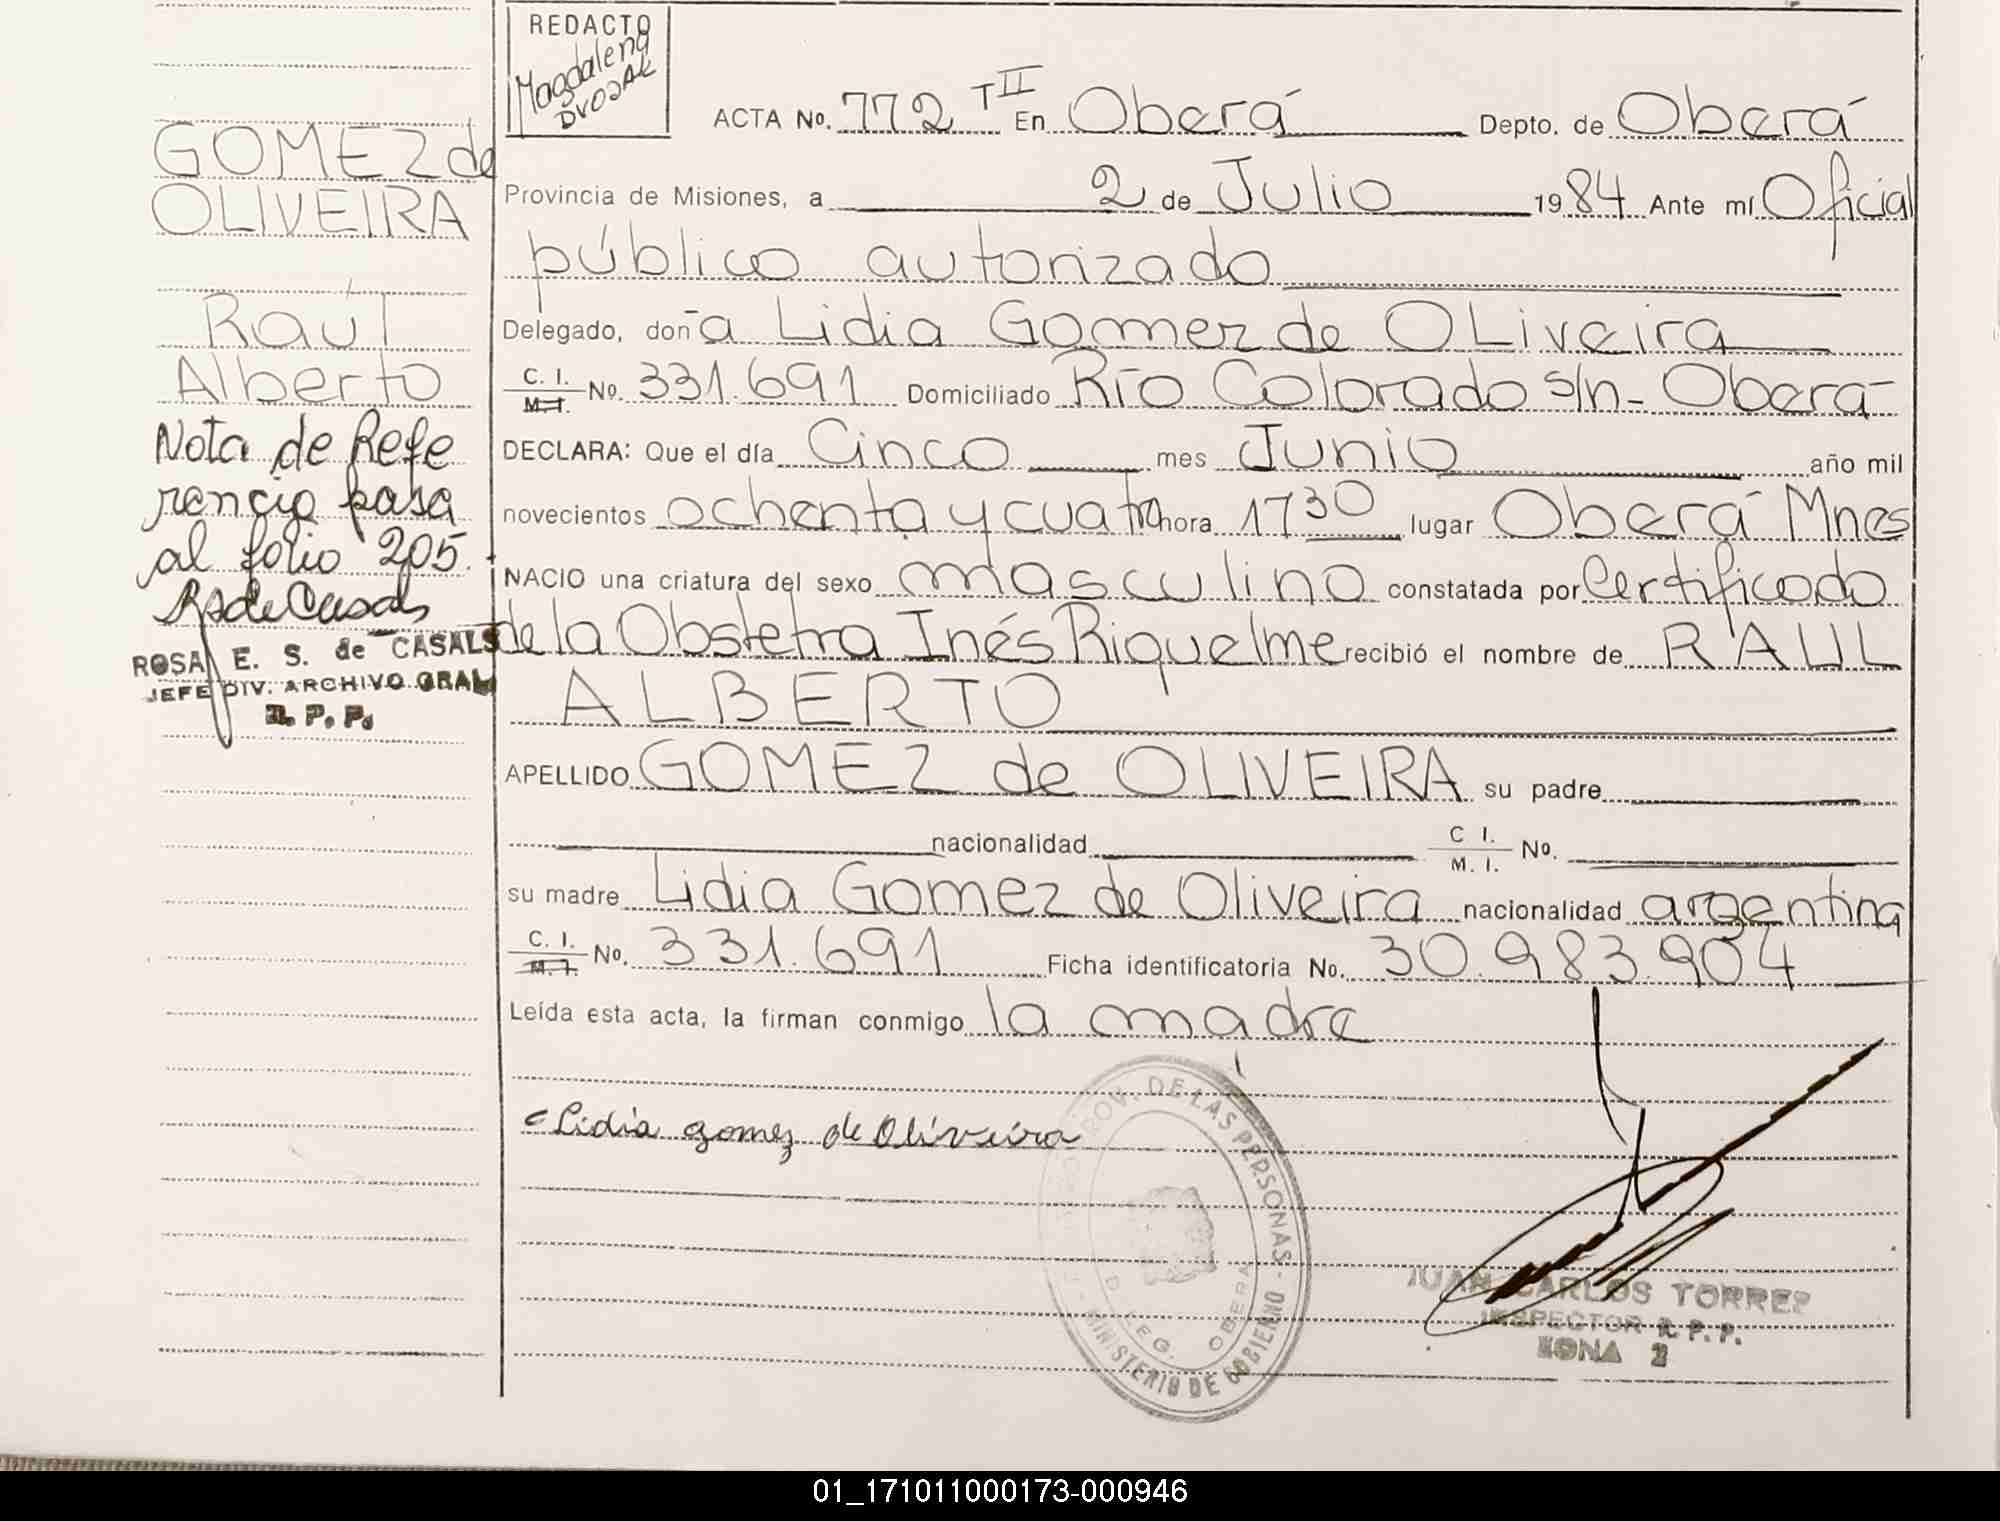 REDACTO
Magdalena
DVOJAK
ACTA No. 772 T II En Oberá Depto. de Oberá
Provincia de Misiones, a 2 de Julio 1984 Ante mí Oficial
público autorizado
Delegado, doña Lidia Gomez de OLiveira
C. I. M. I. No. 331.691 Domiciliado Río Colorado s/n- Oberá-
DECLARA: Que el día Cinco mes Junio año mil
novecientos ochenta y cuatro hora 1730 lugar Oberá Mnes
NACIO una criatura del sexo masculino constatada por Certificado
de la Obstetra Inés Riquelme recibió el nombre de RAUL
ALBERTO
APELLIDO GOMEZ de OLIVEIRA su padre
nacionalidad C I. M. I. No.
su madre Lidia Gomez de Oliveira nacionalidad argentina
C. I. M. I. No. 331.691 Ficha identificatoria No. 30.983.904
Leída esta acta, la firman conmigo la madre
Lidia gomez de Oliveira
GOMEZ de
OLIVEIRA
Raúl
Alberto
Nota de Refe
rencia pasa
al folio 205.
RSdeCasals
ROSA E. S. de CASALS
JEFE DIV. ARCHIVO GRAL
R. P. P.
PROV. DE LAS PERSONAS - MINISTERIO DE GOBIERNO
DELEG. OBERA
JUAN CARLOS TORRES
INSPECTOR R. P. P.
ZONA 2
01_171011000173-000946